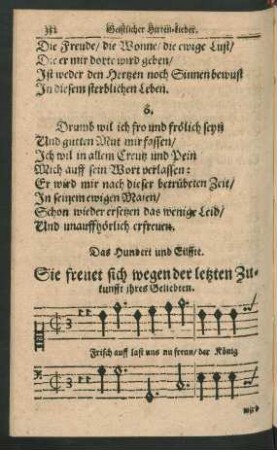 382 Geistlicher Hirten-Lieder.
Die Freude/ die Wonne/ die ewige Lust/
Die er mir dorte wird geben/
Ist weder den Hertzen noch Sinnen bewust
In diesem sterblichen Leben.
6.
Drumb wil ich fro und frölich seyn
Und gutten Mut mir fassen/
Ich wil in allem Creutz und Pein
Mich auff sein Wort verlassen:
Er wird mir nach dieser betrübeten Zeit/
In seinem ewigen Maien/
Schon wieder ersetzen das wenige Leid/
Und unauffhörlich erfreuen.
Das Hundert und Eilffte.
Sie freuet sich wegen der letzten Zu-
kunfft ihres Geliebten.
Frisch auff last uns nu freun/ der König